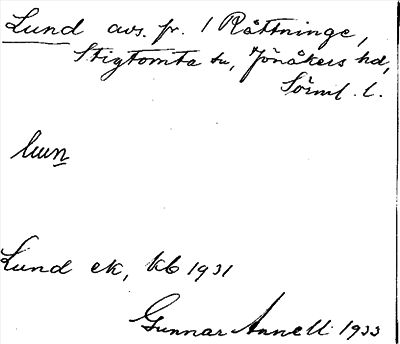 Lund avs. fr. 1 Råttninge,
Stigtomta sn, Jönåkers hd,
Sörml. l.
lun
Lund ek, kb 1931
Gunnar Annell 1933